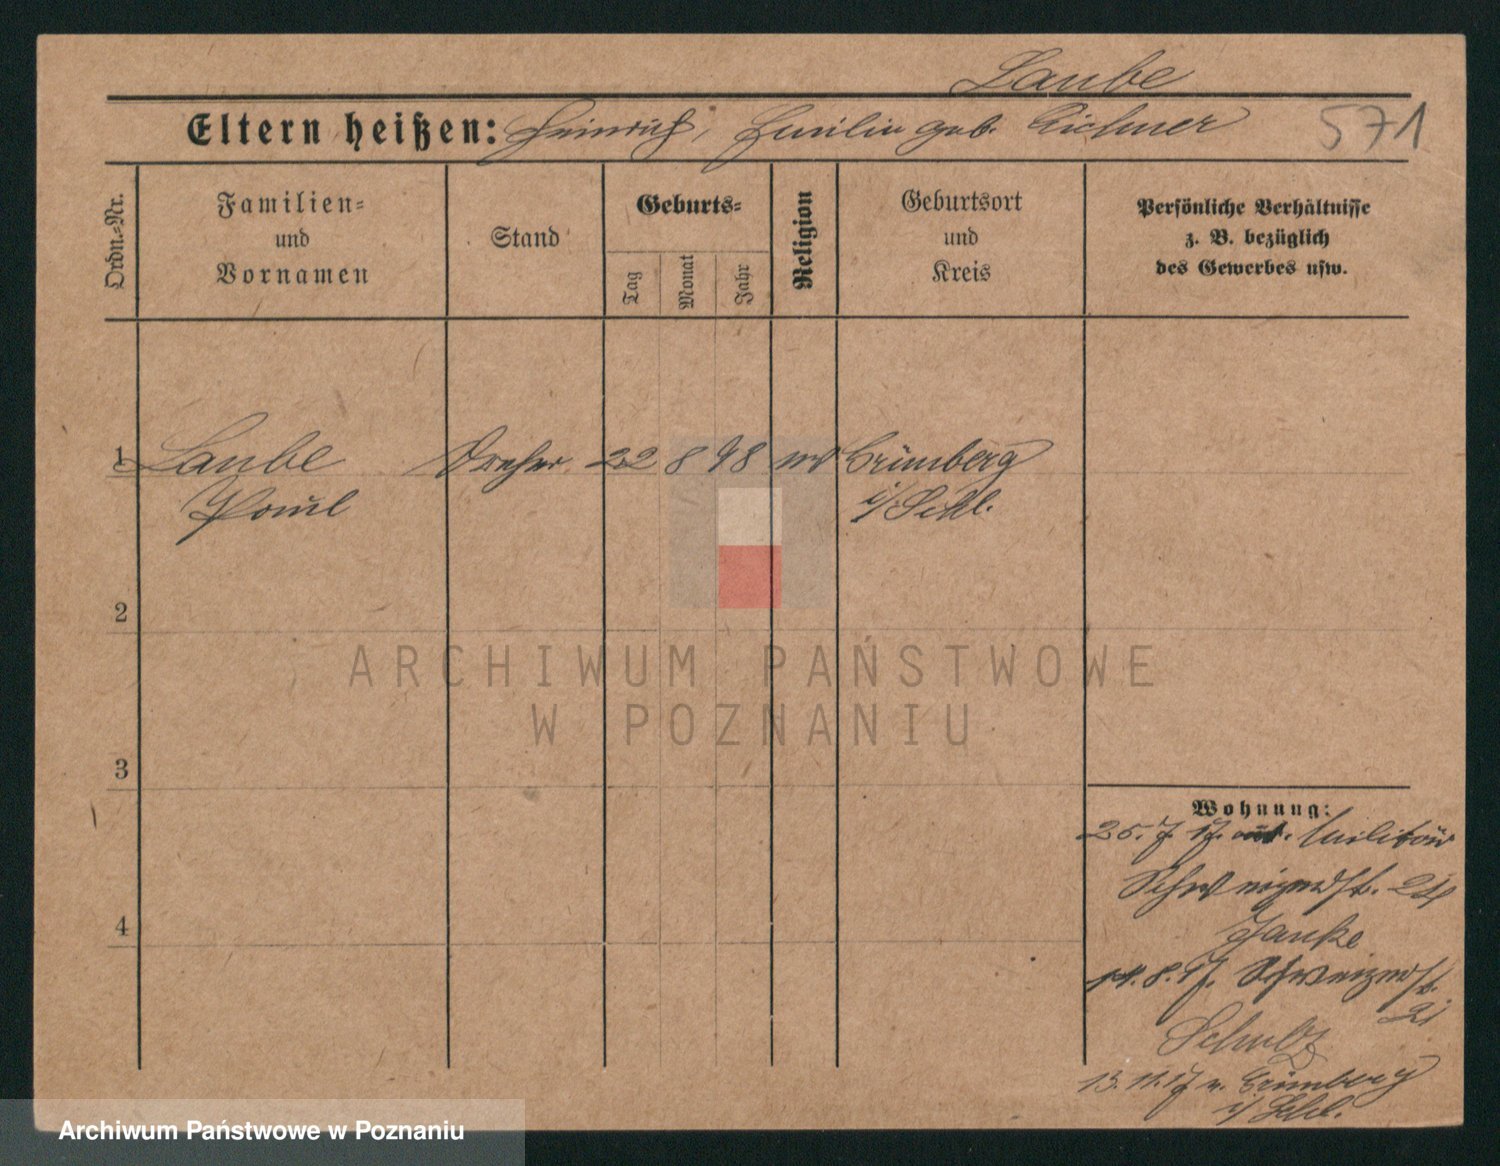 Laube
Eltern heißen: Heinrich, Emilie geb. Eichner
571
Ordn.-Nr.
Familien-
und
Vornamen
Stand
Geburts-
Tag
Monat
Jahr
Religion
Geburtsort
und
Kreis
Persönliche Verhältnisse
z. B. bezüglich
des Gewerbes usw.
1 Laube Dreher 22 8 98 Grünberg
Paul i/Schl.
2
3
4
Wohnung:
25. 7. 17. Militär
24
Janke
14. 8. 17.
21
Schulz
13. 11. 17 n. Grünberg
i/Schl.
ARCHIWUM PAŃSTWOWE
W POZNANIU
Archiwum Państwowe w Poznaniu